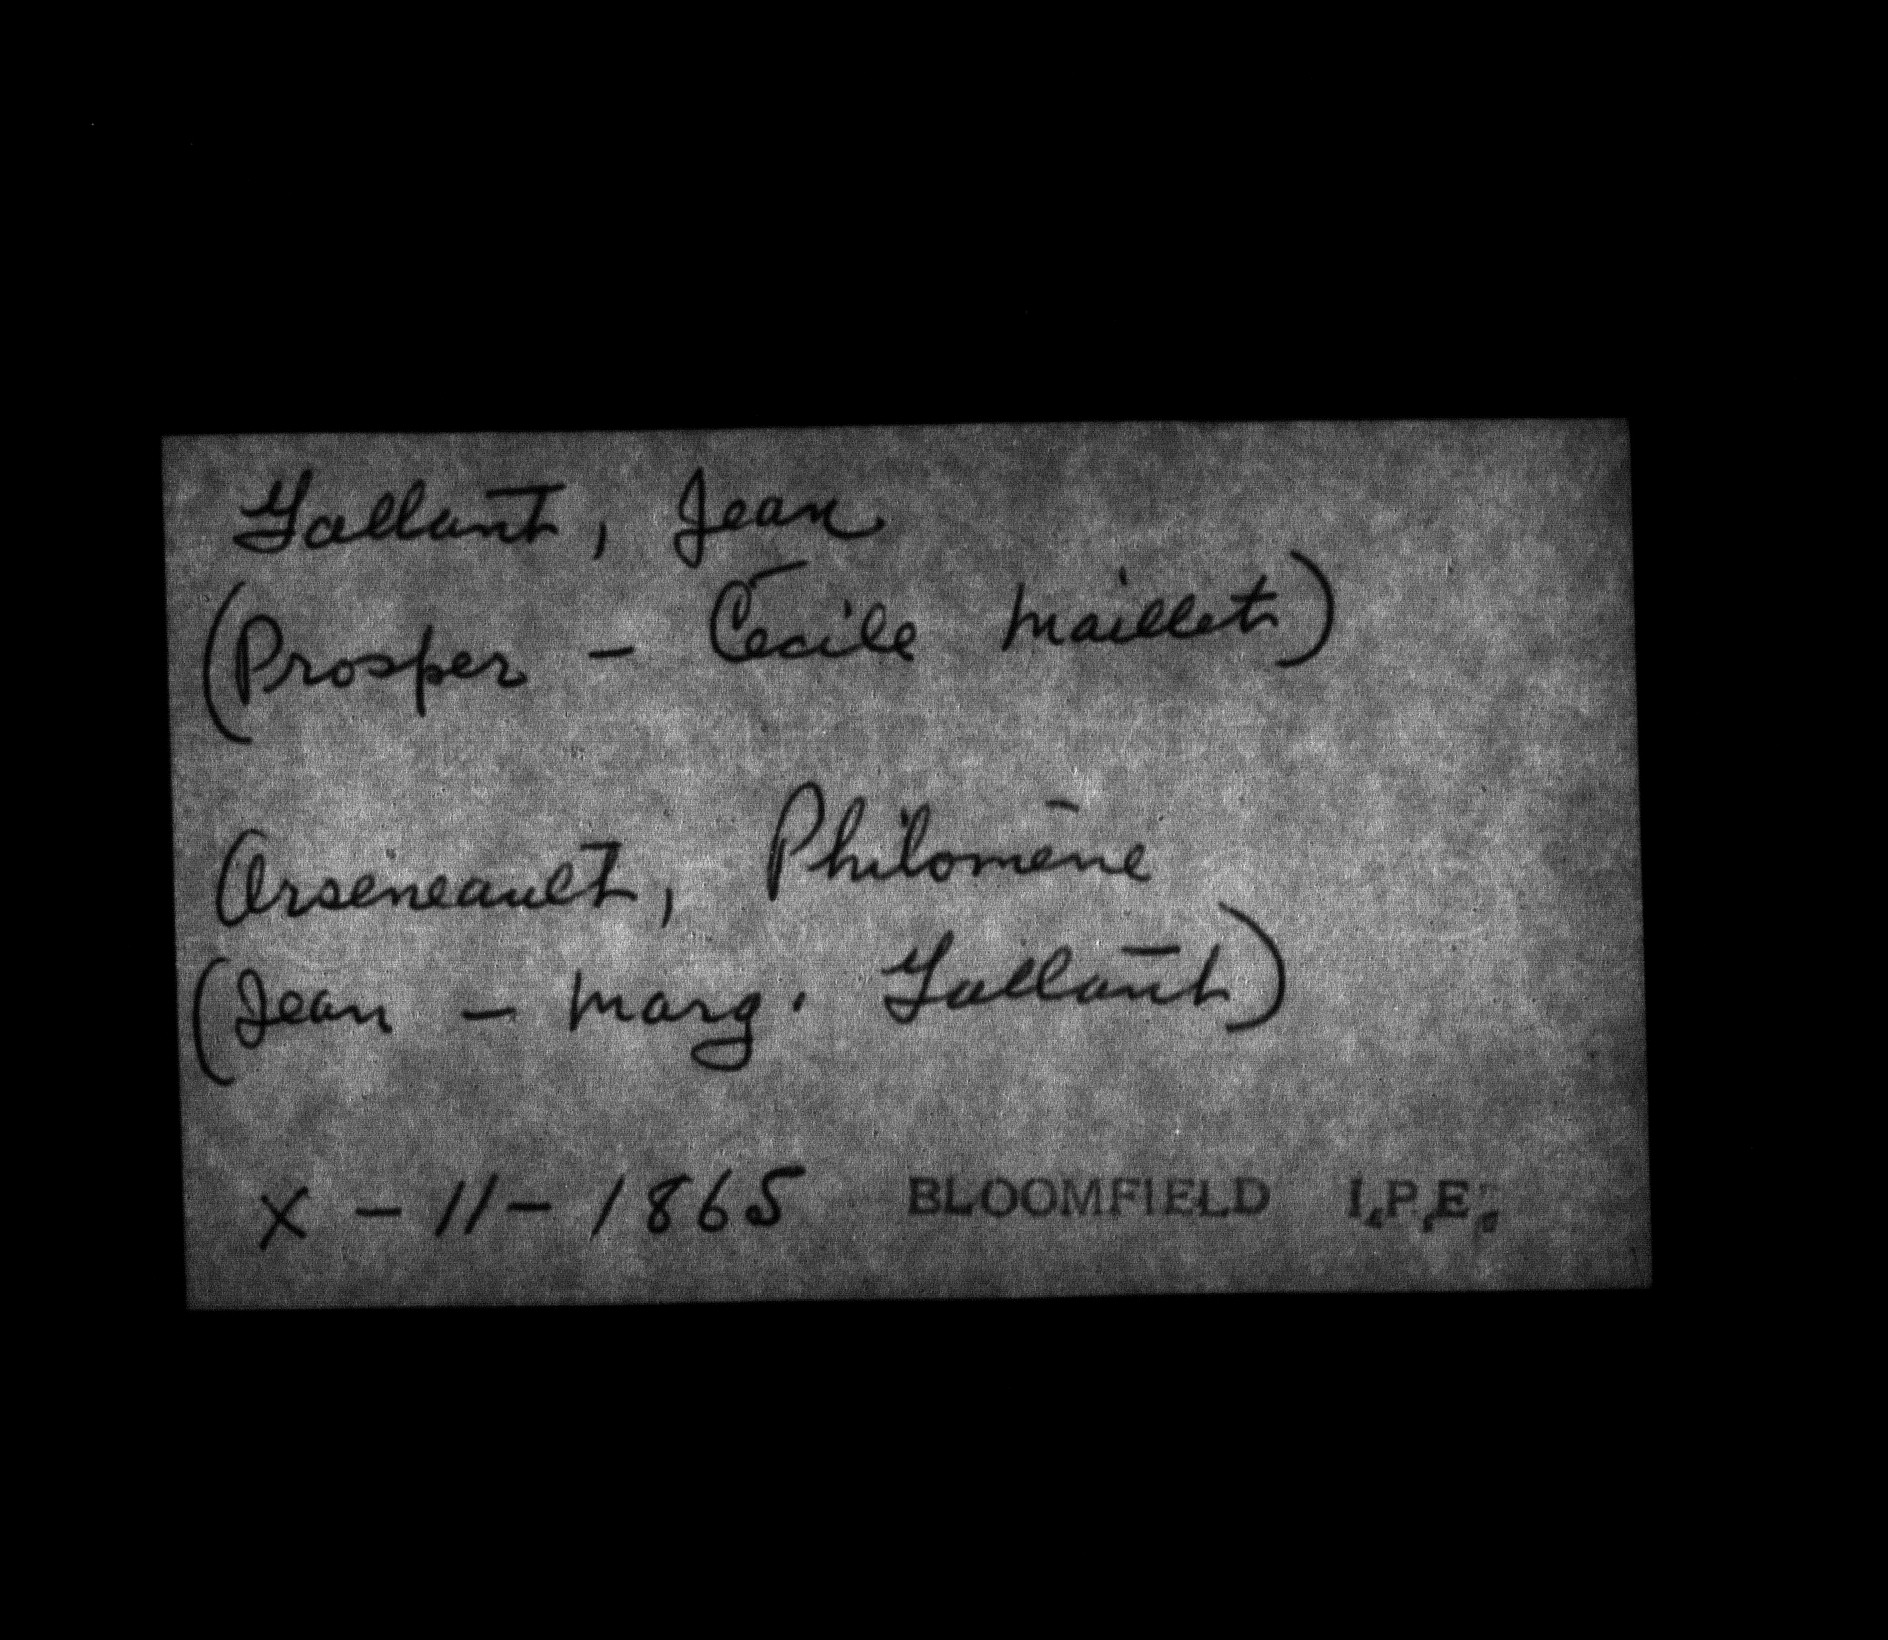 Gallant, Jean
(Prosper - Cécile Maillet)
Arseneault, Philomène
(Jean - Marg. Gallant)
X - 11 - 1865 BLOOMFIELD I.P.E.